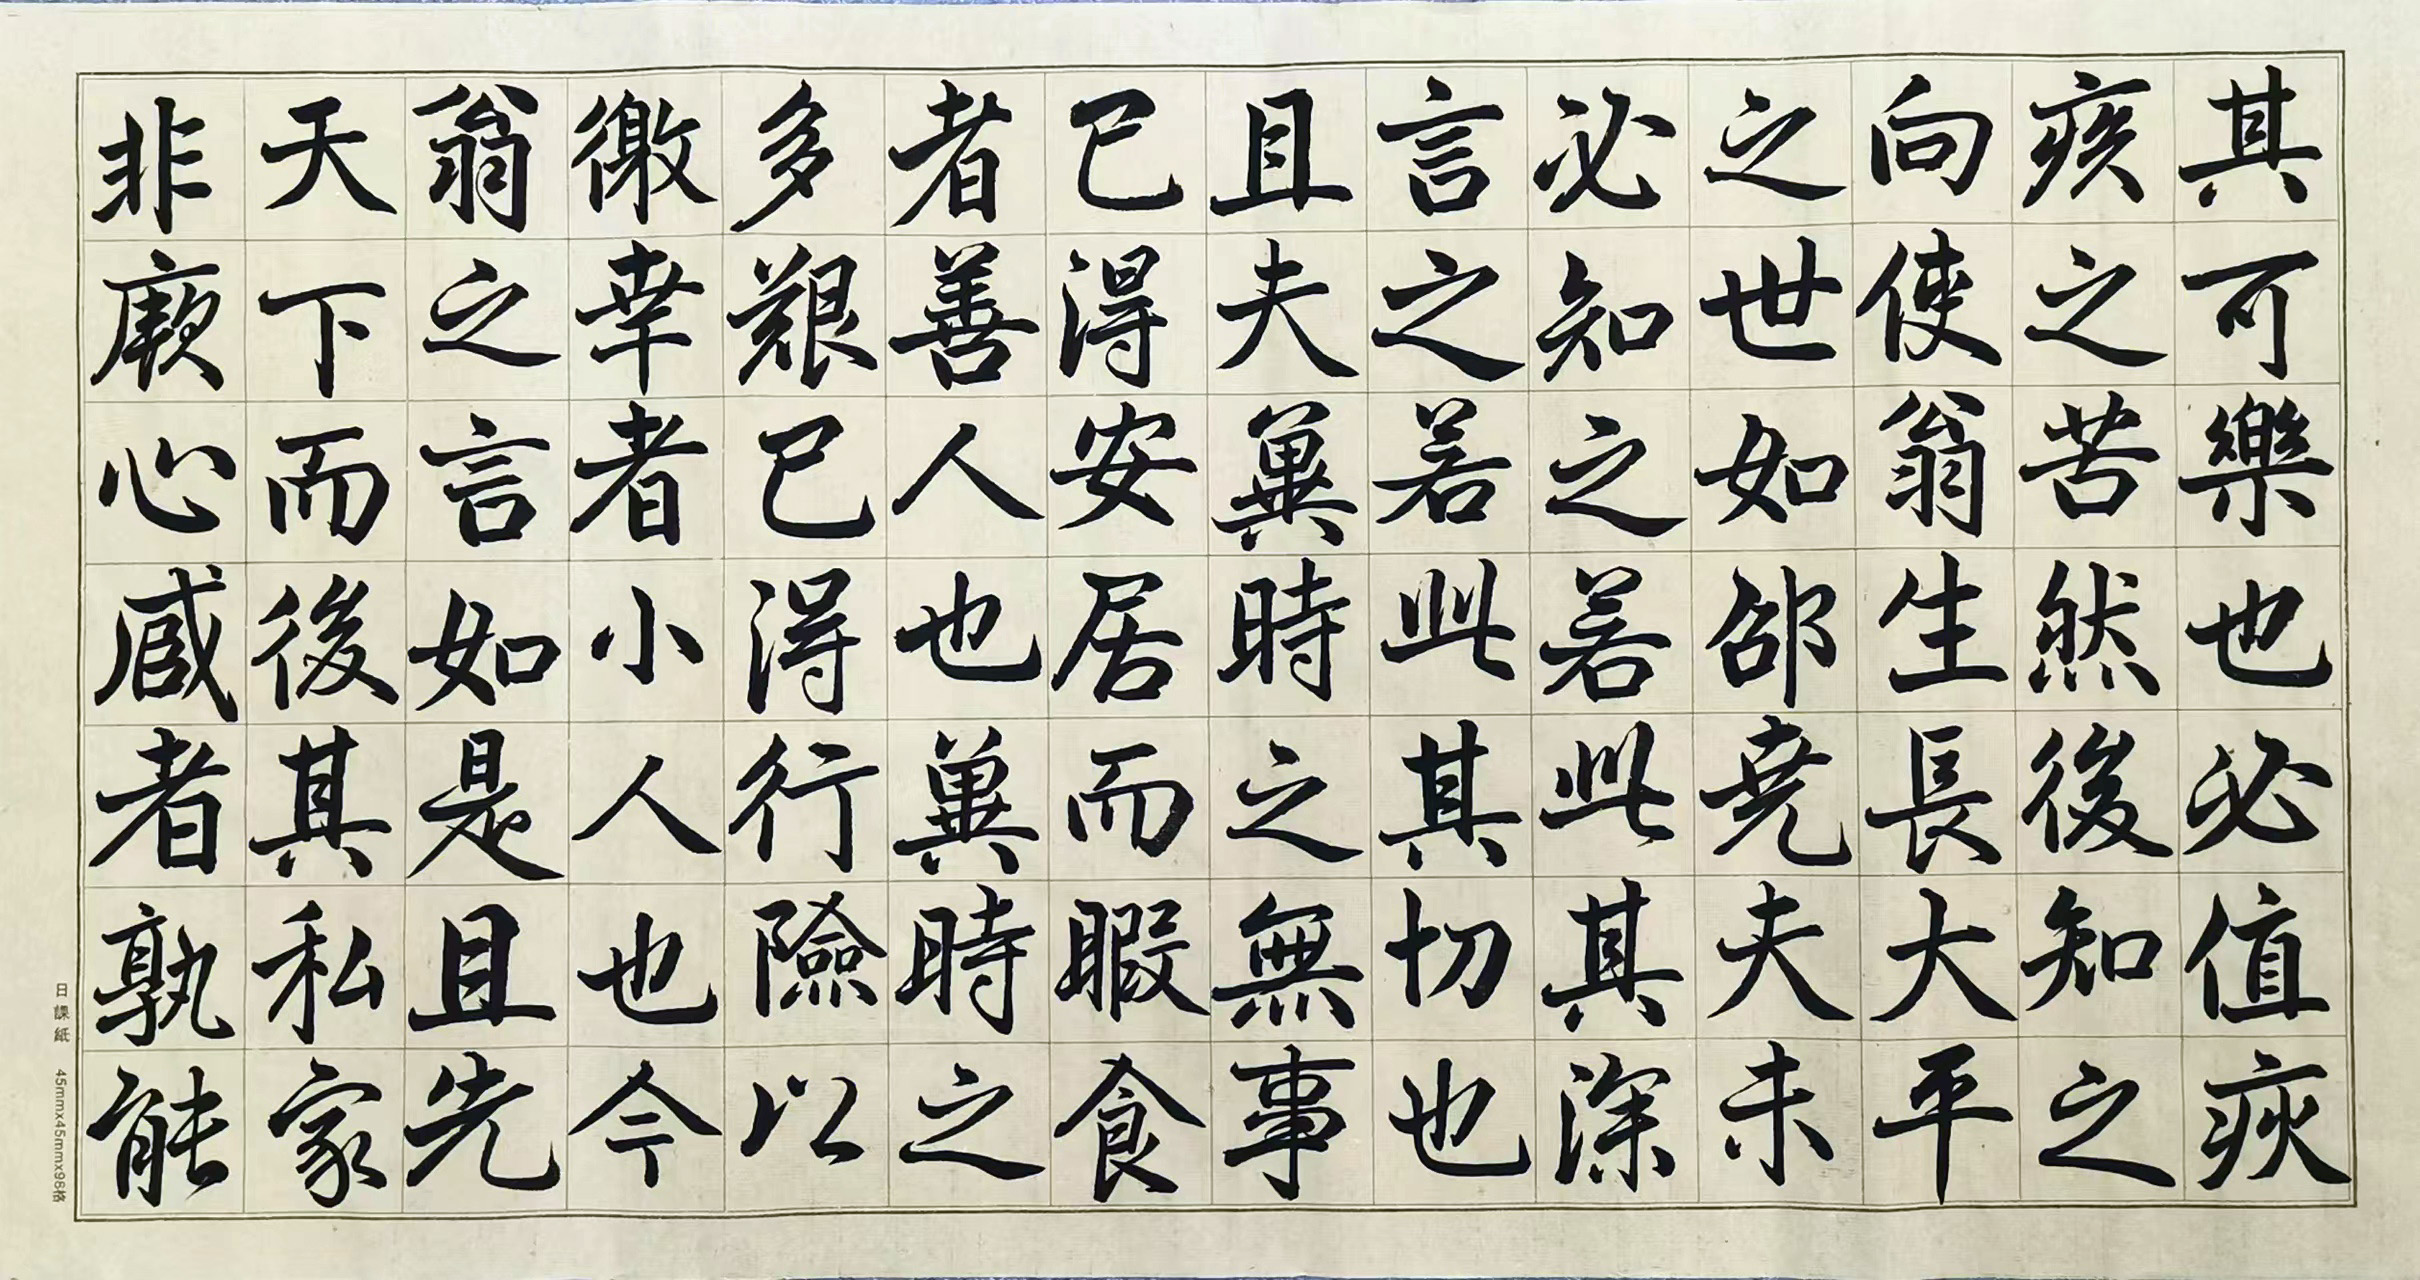 其可樂也必值疢
疾之苦然後知之
向使翁生長大平
之世如邵堯夫未
必知之若此其深
言之若此其切也
且夫冀時之無事
已得安居而暇食
者善人也冀時之
多艱已得行險以
徼幸者小人也今
翁之言如是且先
天下而後其私家
非厥心臧者孰能
日課紙 45mmx45mmx96格